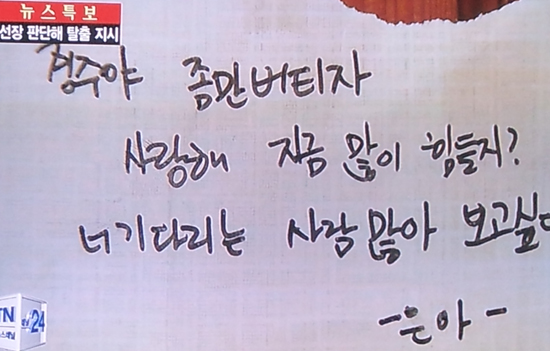 뉴스특보
선장 판단해 탈출 지시
경주야 좀만버티자
사랑해 지금 많이 힘들지?
너 기다리는 사람 많아 보고싶다
-은아-
TN
24
스채널